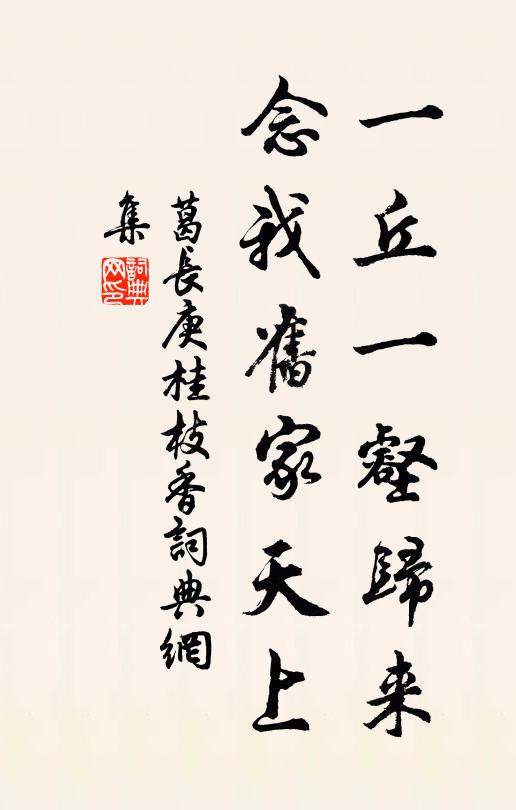 一丘一壑歸来
念我舊家天上
葛長庚桂枝香詞典網
集
詞典
网印